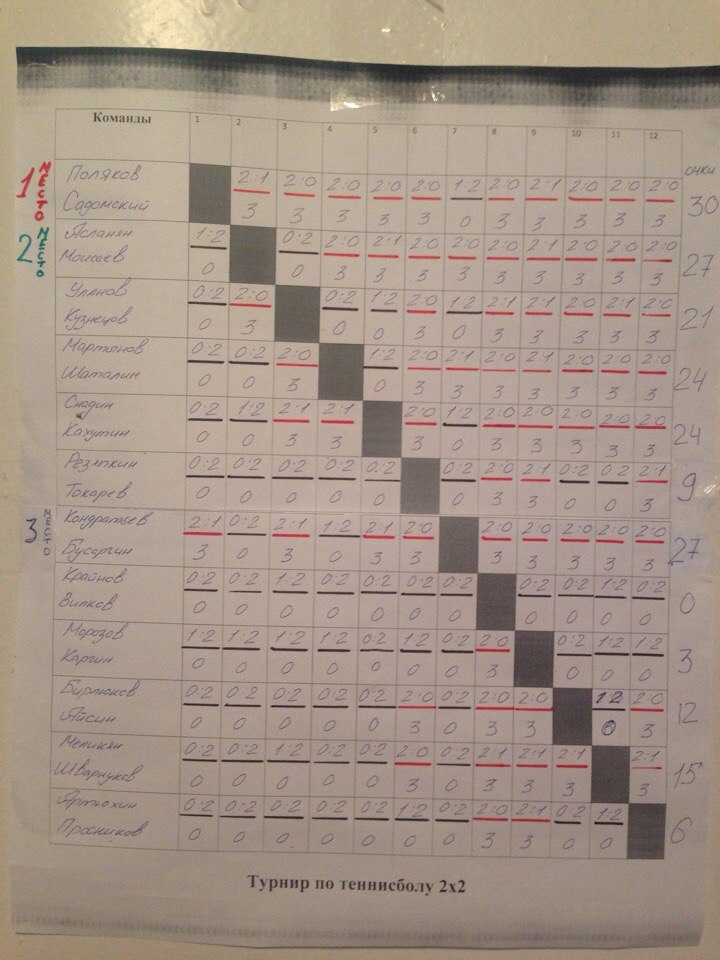 Команды 1 2 3 4 5 6 7 8 9 10 11 12
очки
1 место
Поляков 2:1 2:0 2:0 2:0 2:0 1:2 2:0 2:1 2:0 2:0 2:0
Садомский 3 3 3 3 3 0 3 3 3 3 3 30
2 место
Асланян 1:2 0:2 2:0 2:1 2:0 2:0 2:0 2:1 2:0 2:0 2:0
Моисеев 0 0 3 3 3 3 3 3 3 3 3 27
Уланов 0:2 2:0 0:2 1:2 2:0 1:2 2:1 2:1 2:0 2:1 2:0
Кузнецов 0 3 0 0 3 0 3 3 3 3 3 21
Мартынов 0:2 0:2 2:0 1:2 2:0 2:1 2:0 2:1 2:0 2:0 2:0
Шаталин 0 0 3 0 3 3 3 3 3 3 3 24
0:2 1:2 2:1 2:1 2:0 1:2 2:0 2:0 2:0 2:0 2:0
Кахутин 0 0 3 3 3 0 3 3 3 3 3 24
Резяпкин 0:2 0:2 0:2 0:2 0:2 0:2 2:0 2:1 0:2 0:2 2:1
Токарев 0 0 0 0 0 0 3 3 0 0 3 9
3 место
Кондратьев 2:1 0:2 2:1 1:2 2:1 2:0 2:0 2:0 2:0 2:0 2:0
Бусаргин 3 0 3 0 3 3 3 3 3 3 3 27
Крайнов 0:2 0:2 1:2 0:2 0:2 0:2 0:2 0:2 0:2 1:2 0:2
Вилков 0 0 0 0 0 0 0 0 0 0 0 0
Морозов 1:2 1:2 1:2 1:2 0:2 1:2 0:2 2:0 0:2 1:2 1:2
Каргин 0 0 0 0 0 0 0 3 0 0 0 3
Бирюков 0:2 0:2 0:2 0:2 0:2 2:0 0:2 2:0 2:0 1:2 2:0
Айсин 0 0 0 0 0 3 0 3 3 0 3 12
Меликян 0:2 0:2 1:2 0:2 0:2 2:0 0:2 2:1 2:1 2:1 2:1
0 0 0 0 0 3 0 3 3 3 3 15
Артюхин 0:2 0:2 0:2 0:2 0:2 1:2 0:2 2:0 2:1 0:2 1:2
Просников 0 0 0 0 0 0 0 3 3 0 0 6
Турнир по теннисболу 2х2